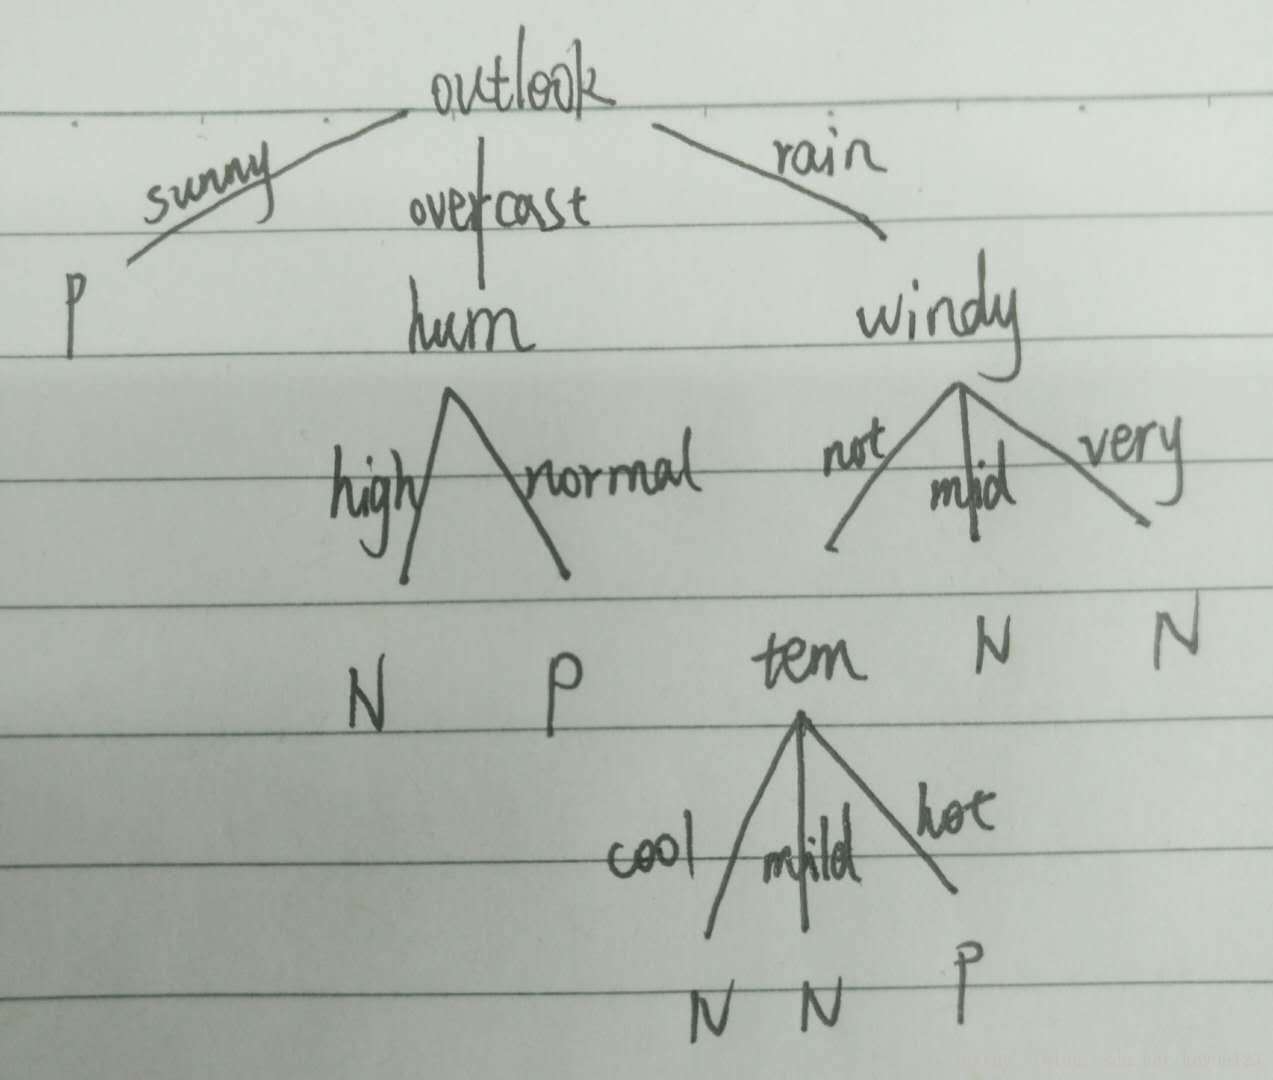 outlook
sunny overcast rain
P hum windy
high normal not mid very
N P tem N N
cool mild hot
N N P